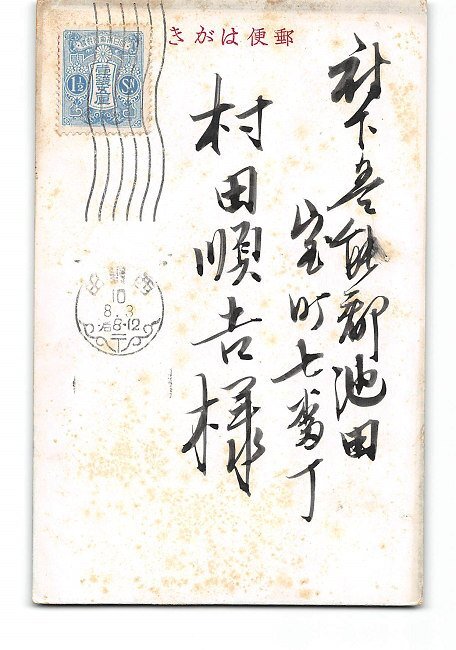 郵便はがき
1½ Sn
府下豊能郡池田
室町七番丁
村田順吉様
10
8.3
后8-12